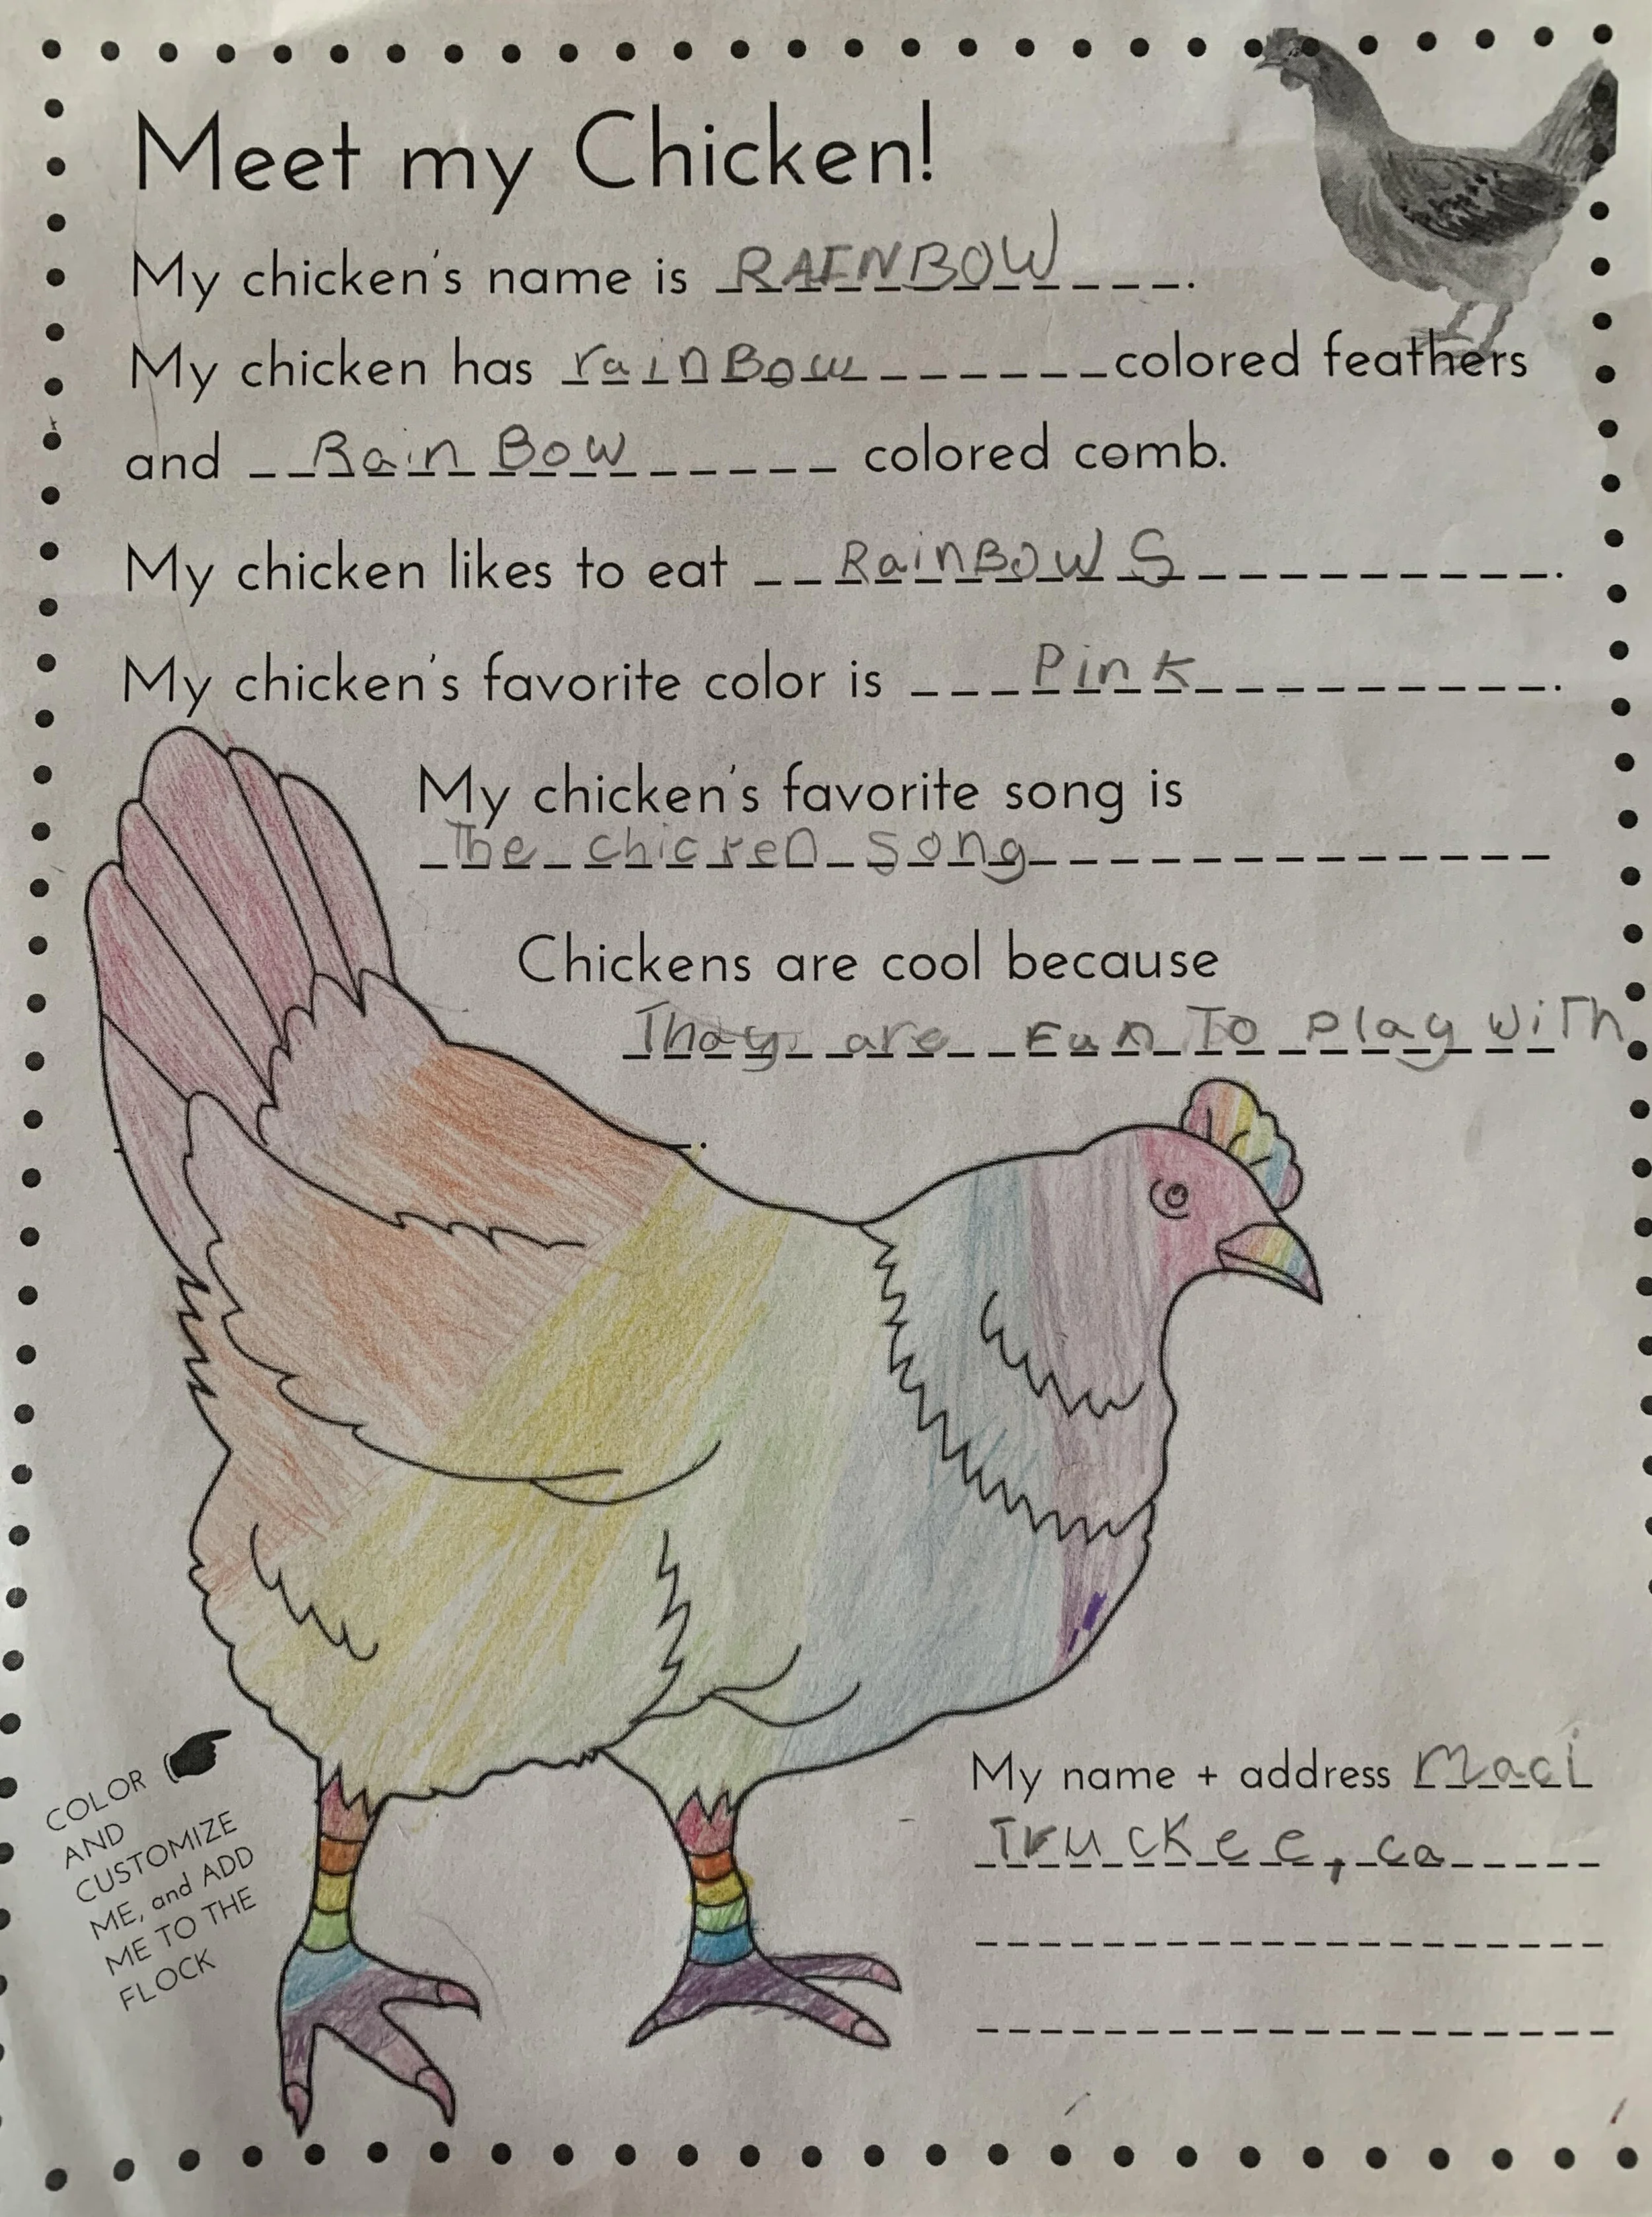 Meet my Chicken!
My chicken's name is RAINBOW.
My chicken has rainBow colored feathers
and Rain Bow colored comb.
My chicken likes to eat RainBOWS.
My chicken's favorite color is Pink.
My chicken's favorite song is
The chicken song
Chickens are cool because
Thay are Fun To Play wiTh
.
COLOR
AND
CUSTOMIZE
ME, and ADD
ME TO THE
FLOCK
My name + address Maci
Truckee, ca